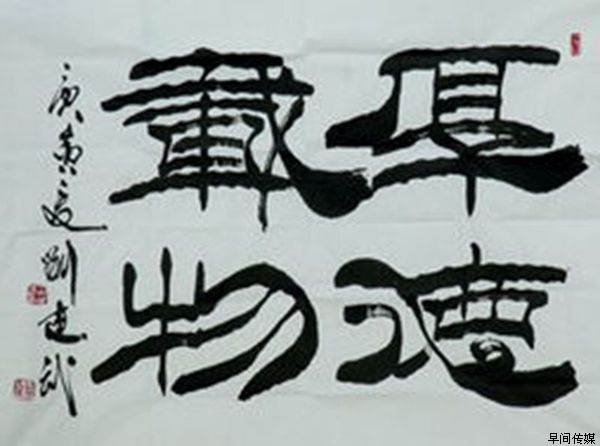 厚德
載物
庚寅夏刘建武
早间传媒